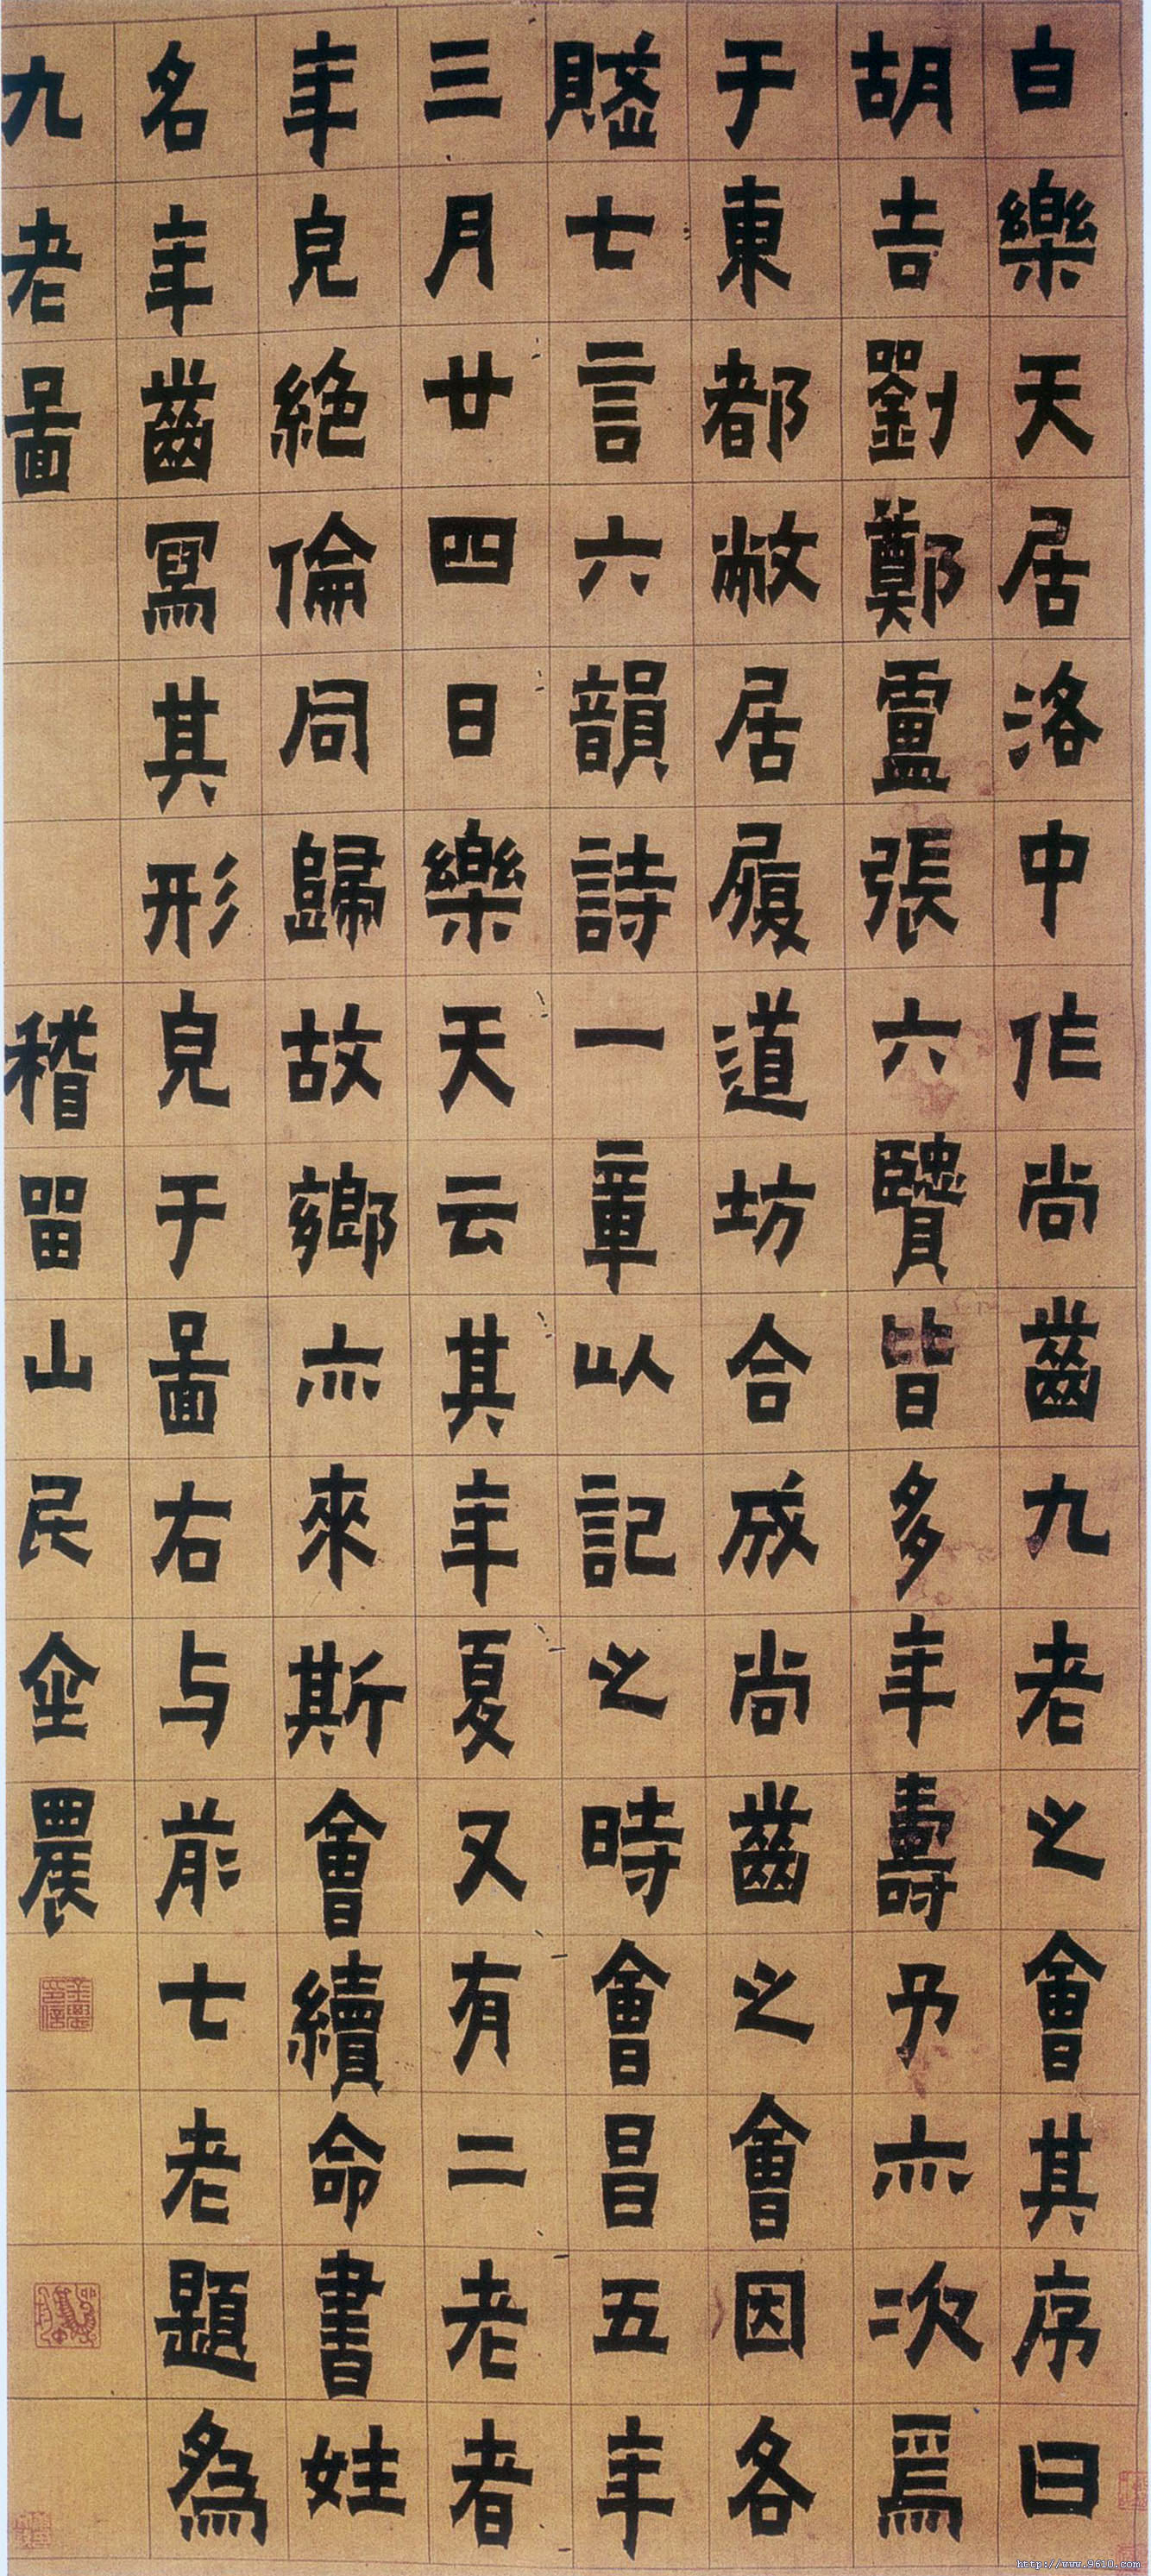 白樂天居洛中作尚齒九老之會其序曰
胡吉劉鄭盧張六賢皆多年壽予亦次焉
于東都敝居履道坊合成尚齒之會因各
賦七言六韻詩一章以記之時會昌五年
三月廿四日樂天云其年夏又有二老者
年皃絕倫同歸故鄉亦來斯會續命書姓
名年齒寫其形皃于圖右与前七老題為
九老圖
稽留山民金農
http://www.9610.com